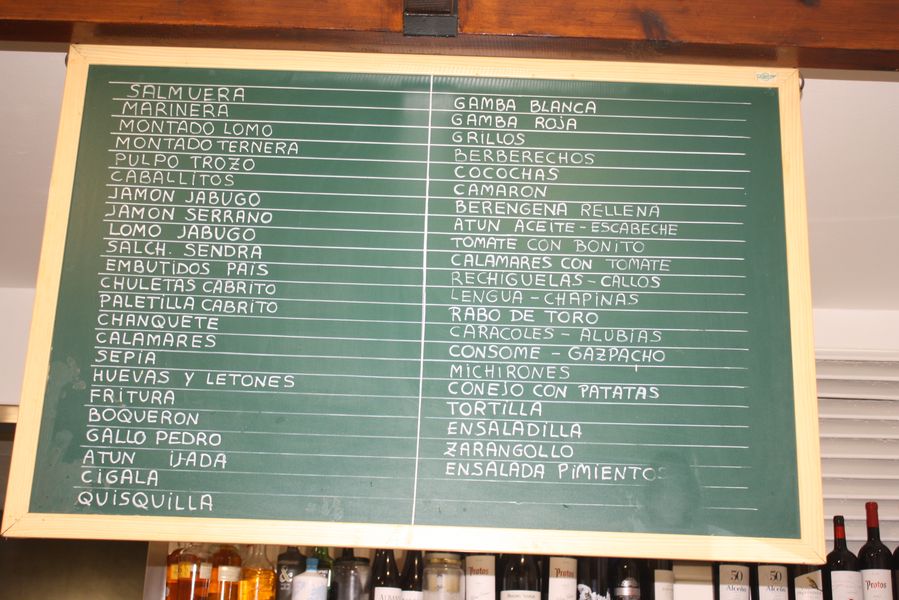 SALMUERA
MARINERA
MONTADO LOMO
MONTADO TERNERA
PULPO TROZO
CABALLITOS
JAMON JABUGO
JAMON SERRANO
LOMO JABUGO
SALCH. SENDRA
EMBUTIDOS PAIS
CHULETAS CABRITO
PALETILLA CABRITO
CHANQUETE
CALAMARES
SEPIA
HUEVAS Y LETONES
FRITURA
BOQUERON
GALLO PEDRO
ATUN IJADA
CIGALA
QUISQUILLA
GAMBA BLANCA
GAMBA ROJA
GRILLOS
BERBERECHOS
COCOCHAS
CAMARON
BERENGENA RELLENA
ATUN ACEITE - ESCABECHE
TOMATE CON BONITO
CALAMARES CON TOMATE
RECHIGUELAS - CALLOS
LENGUA - CHAPINAS
RABO DE TORO
CARACOLES - ALUBIAS
CONSOME - GAZPACHO
MICHIRONES
CONEJO CON PATATAS
TORTILLA
ENSALADILLA
ZARANGOLLO
ENSALADA PIMIENTOS
Protos
Protos
50
50
Protos